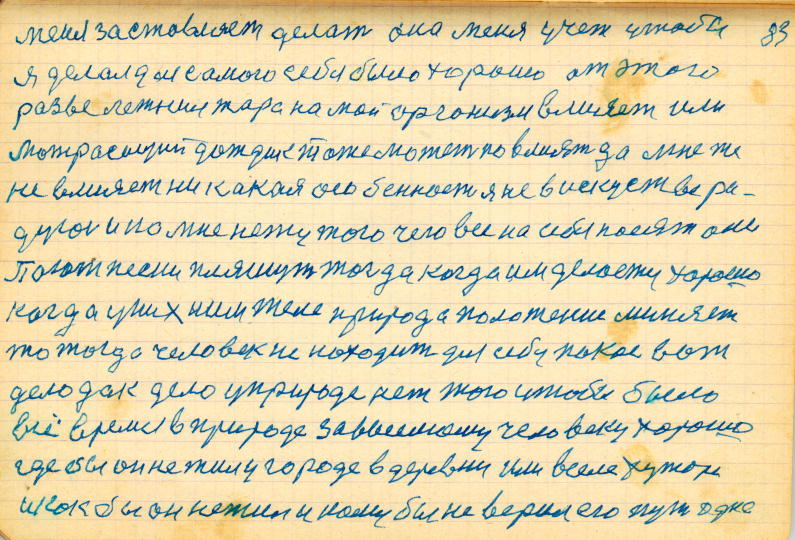 меня заставляет делат она меня учет чтобы 83
я делал для самого себя было хорошо от этого
разве летния жара на мой организм влияет или
мотрасющий дождик тоже может повлият да мне же
не влияет ни какая особенност я не в искустве ри-
дугой и по мне нету того чего все на себя посят они
Поют песни пляшут тогда когда им делоету хорошо
когда у них ним теле природа положение меняет
то тогда человек не находит для себя покое вот
дело дак дело у природе нет того чтобы было
всё время в природе завыемому человеку хорошо
где бы он не жил у городе в деревни или в селе хутохи
и как бы он не жил и кому бы не верил его пут одна